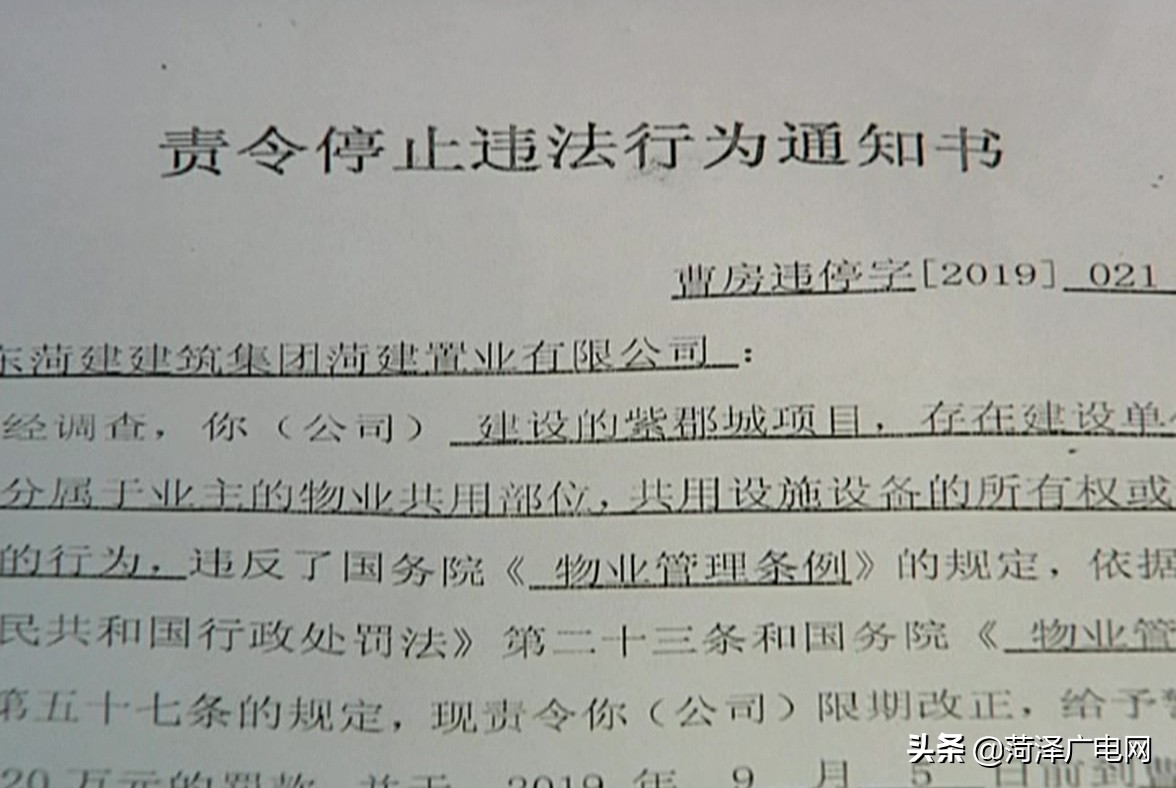 责令停止违法行为通知书
曹房违停字[2019] 021
东菏建建筑集团菏建置业有限公司：
经调查，你（公司） 建设的紫郡城项目，存在建设单
分属于业主的物业共用部位，共用设施设备的所有权或
的行为，违反了国务院《 物业管理条例》的规定，依据
民共和国行政处罚法》第二十三条和国务院《 物业管
第五十七条的规定，现责令你（公司）限期改正，给予警
20万元的罚款，并于 2019 年 9 月 5 日前到曹
头条 @菏泽广电网